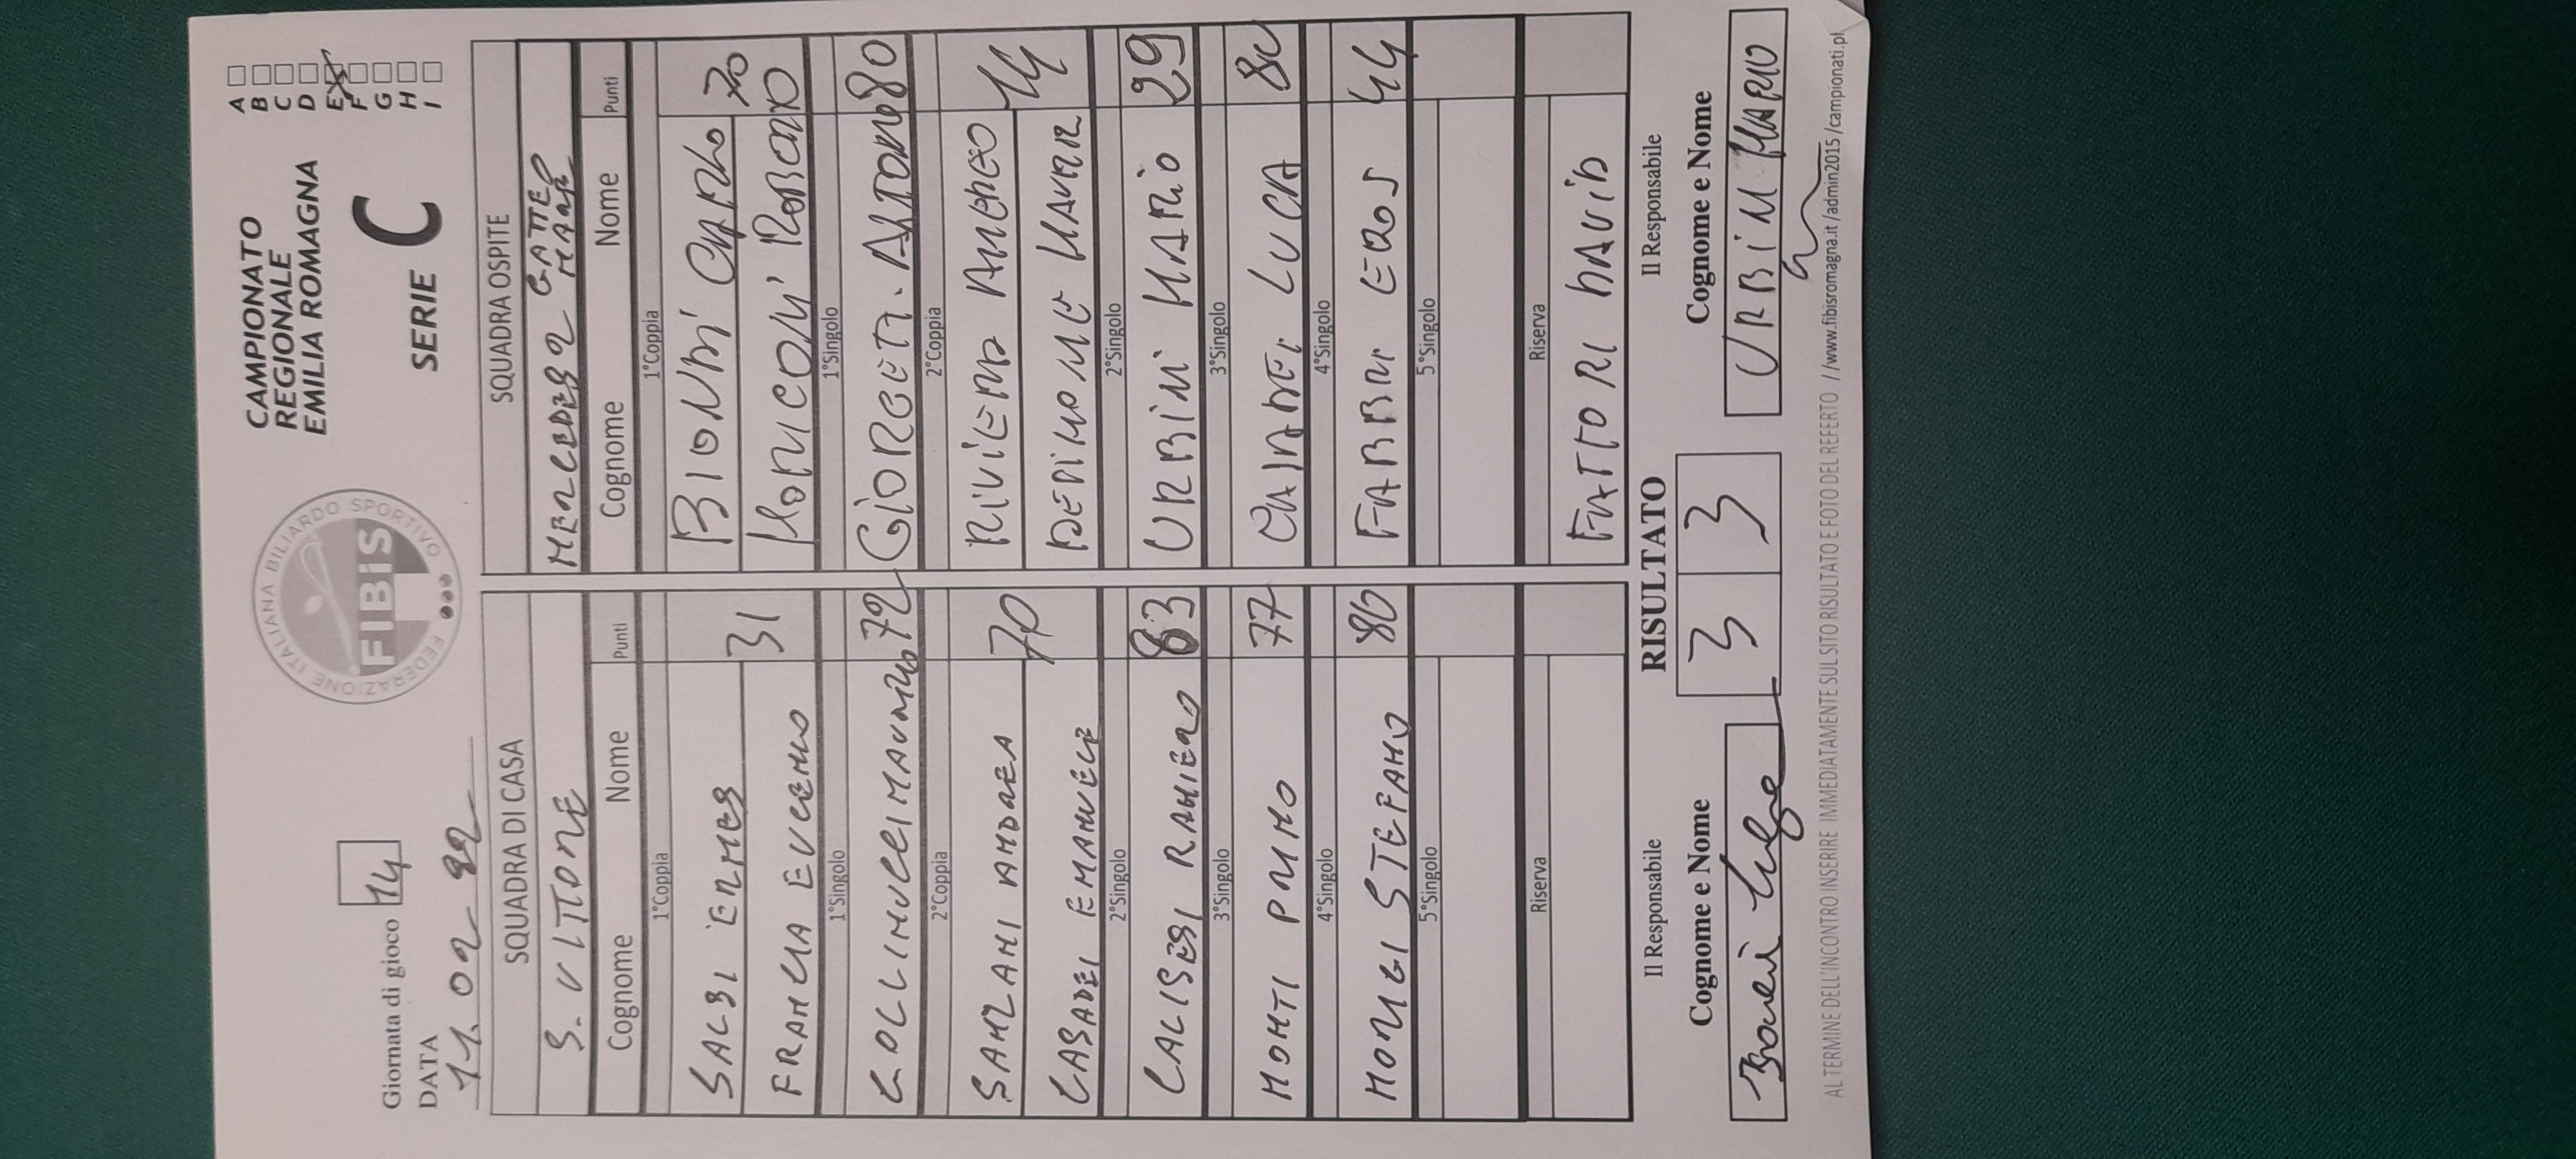 Giornata di gioco 14
DATA
11.02.22
FEDERAZIONE ITALIANA BILIARDO SPORTIVO
FIBiS
CAMPIONATO
REGIONALE
EMILIA ROMAGNA
SERIE C
A
B
C
D
E
F
G
H
I
SQUADRA DI CASA
S. VITTORE
Cognome Nome Punti
1°Coppia
SALBI ERMES
31
FRANCIA EUGENIO
1°Singolo
COLLINUCCI MAURIZIO 72
2°Coppia
SANZANI ANDREA
70
CASADEI EMANUELE
2°Singolo
CALISESI RANIERO 83
3°Singolo
MONTI PRIMO 77
4°Singolo
MONGI STEFANO 80
5°Singolo
Riserva
SQUADRA OSPITE
MERCEDES 2 GATTEO MARE
Cognome Nome Punti
1°Coppia
BIONDI CARLO
70
MORICONI ROBERTO
1°Singolo
GIORGETTI. ANTONIO 80
2°Coppia
RIVIERA AMEDEO
14
2°Singolo
URBINI MARIO 29
3°Singolo
CASADEI LUCA 80
4°Singolo
FABBRI EROS 44
5°Singolo
Riserva
FATTORI DAVID
Il Responsabile
Cognome e Nome
RISULTATO
3 3
Il Responsabile
Cognome e Nome
URBINI MARIO
AL TERMINE DELL'INCONTRO INSERIRE IMMEDIATAMENTE SUL SITO RISULTATO E FOTO DEL REFERTO //www.fibisromagna.it /admin2015 /campionati.pl